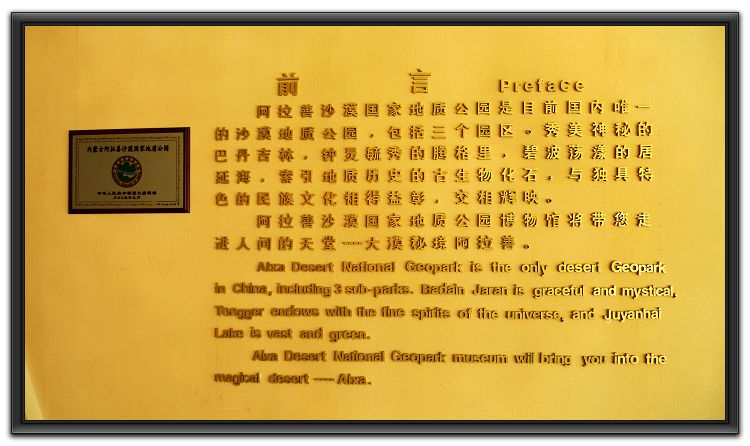 内蒙古阿拉善沙漠国家地质公园
前 言 Preface
阿拉善沙漠国家地质公园是目前国内唯一
的沙漠地质公园，包括三个园区。秀美神秘的
巴丹吉林，钟灵毓秀的腾格里，碧波荡漾的居
延海，索引地质历史的古生物化石，与独具特
色的民族文化相得益彰，交相辉映。
阿拉善沙漠国家地质公园博物馆将带您走
进人间的天堂──大漠秘境阿拉善。
Alxa Desert National Geopark is the only desert Geopark
in China, including 3 sub-parks. Badain Jaran is graceful and mystical,
Tengger endows with the fine spirits of the universe, and Juyanhai
Lake is vast and green.
Alxa Desert National Geopark museum will bring you into the
magical desert ── Alxa.